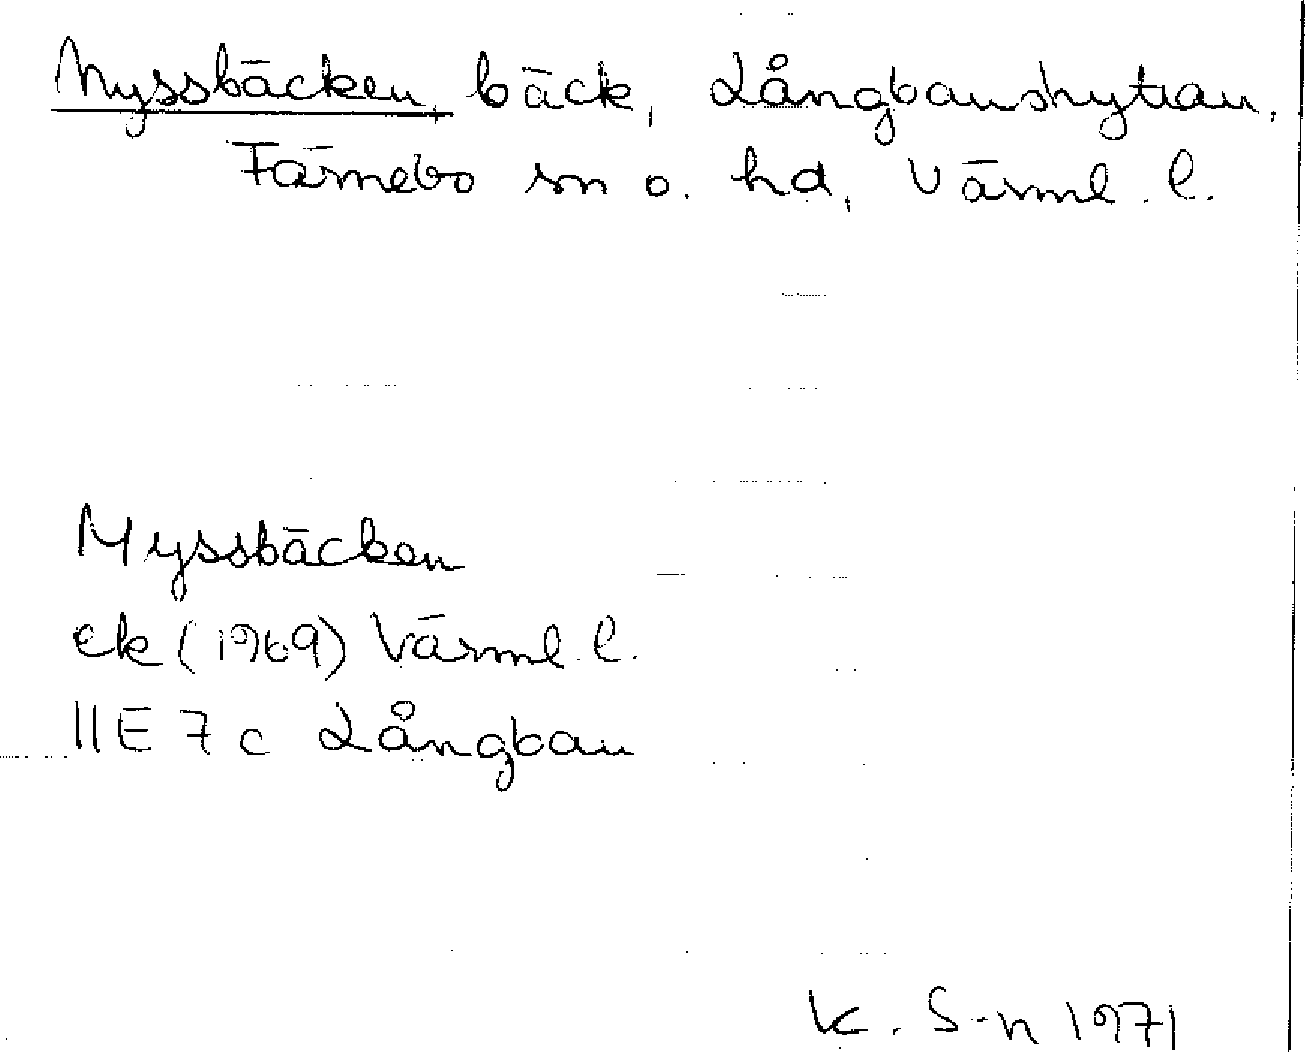 Myssbäcken, bäck, Långbanshyttan,
Färnebo sn o. hd, Värml. l.
Myssbäcken
ek (1969) Värml. l.
11E 7c Långban
K. S-n 1971